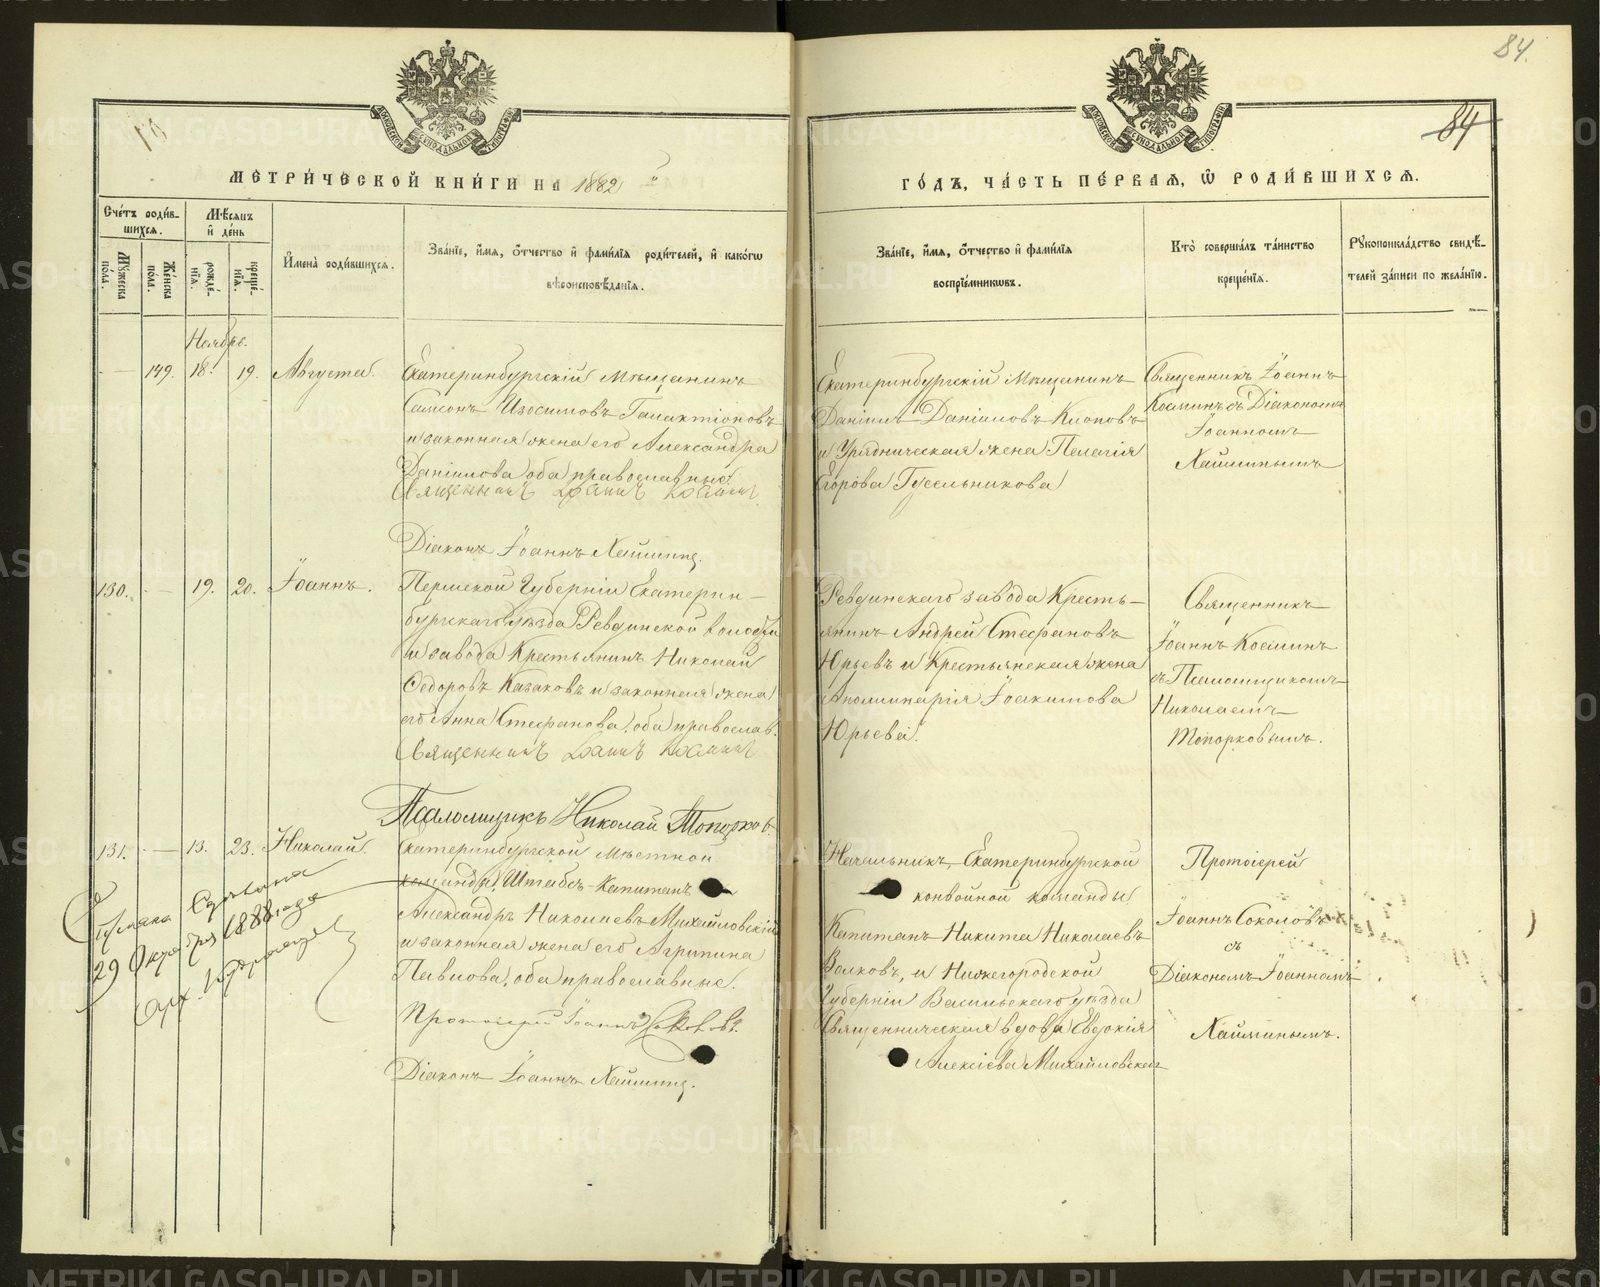 84.
84
МЕТРИ́ЧЕСКОЙ КНИ́ГИ НА 1882
ГО́ДЪ, ЧА́СТЬ ПЕ́РВАЯ, Ѽ РОДИ́ВШИХСЯ.
Сче́тъ роди́в-
шихся.
Мꙋ́жеска по́ла.
Же́нска по́ла.
Мѣ́сяцъ
и҆ де́нь
рожде́-
нїя.
креще́-
нїя.
И҆мена̀ роди́вшихся.
Зва́нїе, и҆́мя, ѻ҆́тчество и҆ фами́лїя роди́телей, и҆ како́гѡ
вѣроисповѣ́данїя.
Зва́нїе, и҆́мя, ѻ҆́тчество и҆ фами́лїя
воспрїе́мникѡвъ.
Кто̀ соверша́лъ та́инство
креще́нїя.
Рꙋкоприкла́дство свидѣ́-
телей за́писи по жела́нїю.
Ноябрь.
149. 18. 19. Августа.
Екатеринбургскій Мѣщанинъ
Самсонъ Изосимовъ Галактіоновъ
и законная жена его Александра
Даніилова оба православные.
Священникъ Іоаннъ Косминъ
Діаконъ Іоаннъ Хайминъ.
Екатеринбургскій Мѣщанинъ
Даніилъ Даніиловъ Клоповъ
и Урядническая жена Пелагія
Егорова Гусельникова
Священникъ Іоаннъ
Косминъ съ Діакономъ
Іоанномъ
Хайминымъ
130. 19. 20. Іоаннъ.
Пермской Губерніи Екатерин-
бургскаго уѣзда Ревдинской волости
и завода Крестьянинъ Николай
Ѳедоровъ Казаковъ и законная жена
его Анна Стефанова, оба православ.
Священникъ Іоаннъ Косминъ
Псаломщикъ Николай Топорковъ.
Ревдинскаго завода Кресть-
янинъ Андрей Стефановъ
Юрьевъ и Крестьянская жена
Аполлинарія Іоакимова
Юрьева.
Священникъ
Іоаннъ Косминъ
съ Псаломщикомъ
Николаемъ
Топорковымъ.
131. 13. 23. Николай.
Екатеринбургской мѣстной
команды Штабсъ-Капитанъ
Александръ Николаевъ Михайловскій
и законная жена его Агрипина
Павлова, оба православные.
Протоіерей Іоаннъ Соколовъ.
Діаконъ Іоаннъ Хайминъ.
29 Октября 1888 года
Начальникъ Екатеринбургской
конвойной команды
Капитанъ Никита Николаевъ
Волковъ, и Нижегородской
Губерніи Васильскаго уѣзда
Священническая вдова Евдокія
Алексіева Михайловская
Протоіерей
Іоаннъ Соколовъ
съ
Діакономъ Іоанномъ
Хайминымъ.